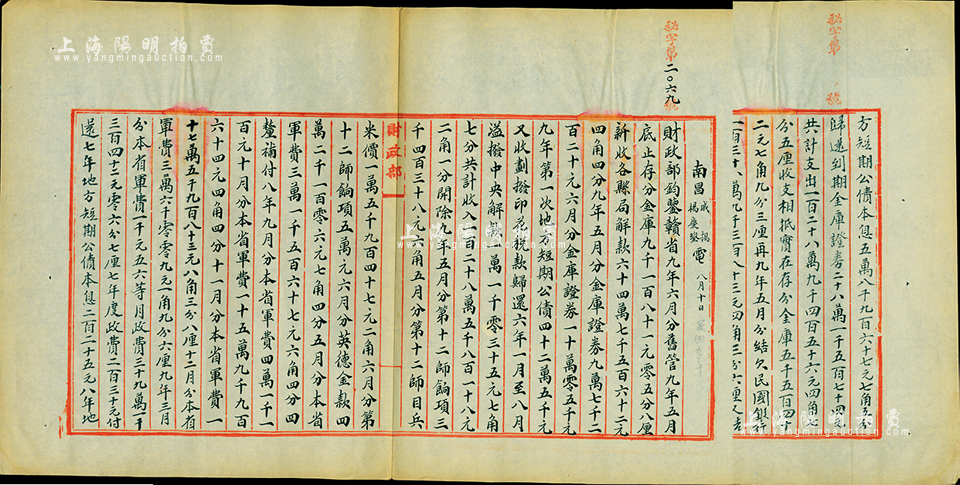 上海陽明拍賣
www.yangmingauction.com
秘字第二〇六九號
秘字第 號
財政部
南昌 戚揚 楊慶鋆 電 八月十日
財政部鈞鑒贛省九年六月分舊管九年五月
底止存分金庫九千一百八十一元零五分八厘
新收各縣局解款六十四萬七千五百六十二元
四角四分九年五月分金庫證券九萬七千二
百二十元六月分金庫證券一十萬零五千元
九年第一次地方短期公債四十二萬五千元
又收劃撥印花稅款歸還六年一月至八月
溢撥中央解款一萬一千零三十五元七角
七分共計收入一百二十八萬五千八百一十八元
二角一分開除九年五月分第十二師餉項三
千四百三十八元六角五月分第十二師目兵
米價一萬五千九百四十七元二角六月分第
十二師餉項五萬元六月分英德金款四
萬二千一百零六元七角四分五月分本省
軍費三萬一千五百六十七元六角四分四
釐補付八年九月分本省軍費四萬一千一
百元十月分本省軍費一十五萬九千九百
六十四元四角四分十一月分本省軍費一
十七萬五千九百八十三元八角三分八厘十二月分本省
軍費三萬六千零零九元一角九分六厘九年三月
分本省軍費一千元五六等月政費三十九萬二千
三百四十三元零六分七厘七年度政費二百三十元付
還七年地方短期公債本息二百二十五元八年地
方短期公債本息五萬八千九百六十七元七角五分
歸還到期金庫證券二十八萬一千五百七十四元
共計支出一百二十八萬九千四百五十六元四角七
分五厘收支相抵實在存分金庫五千五百四十
二元七角九分三厘再九年五月分結欠民國銀行